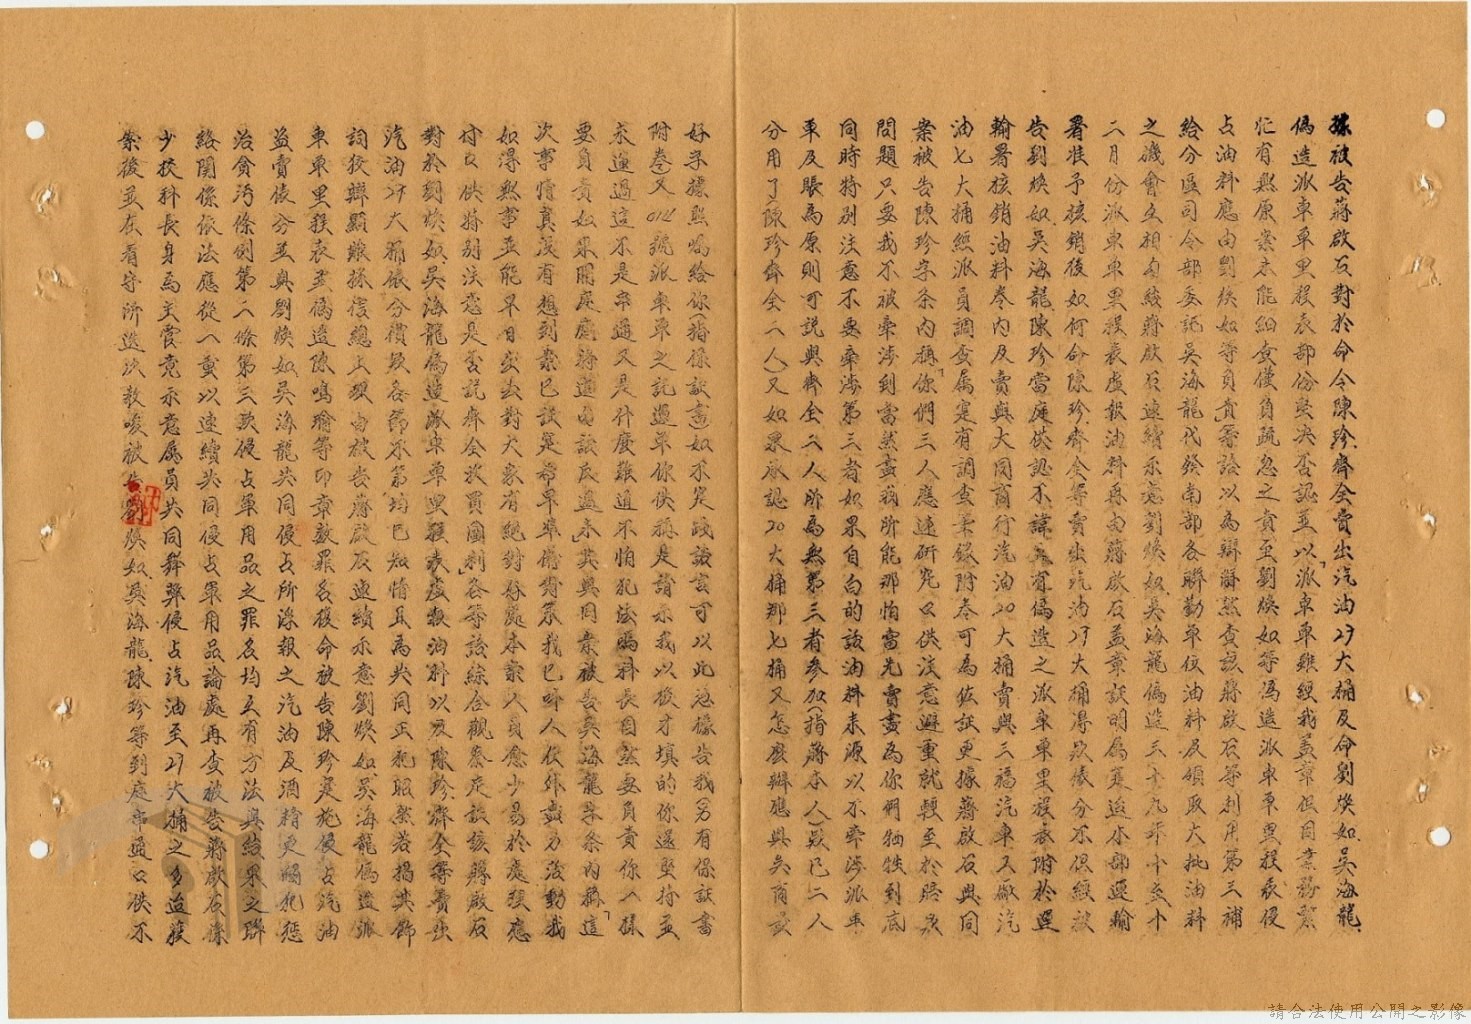 據被告蔣啟石對於命令陳珍齊全賣出汽油27大桶及命劉煥如吳海龍
偽造派車單里程表部份堅決否認並以「派車單雖經我蓋章但同業務繁
忙有無原案未能細查僅負疏忽之責至劉煥如等偽造派車單里程表侵
占油料應由劉煥如等負責」等語以為辯解然查該蔣啟石等利用第三補
給分區司令部委託吳海龍代發南部各聯勤單位油料及領取大批油料
之機會互相勾結蔣啟石連續示意劉煥如吳海龍偽造三十九年十至十
二月份派車單里程表虛報油料再由蔣啟石蓋章証明屬實送本部運輸
署准予核銷後如何命陳珍齊全等賣出汽油27大桶得款俵分不但經被
告劉煥如吳海龍陳珍當庭供認不諱且有偽造之派車單里程表附於運
輸署核銷油料卷內及賣與大同商行汽油20大桶賣與三福汽車工廠汽
油七大桶經派員調查屬實有調查筆錄附卷可為佐証更據蔣啟石與同
案被告陳珍字条內稱「你們三人應速研究口供注意避重就輕至於賠款
問題只要我不被牽涉到當然盡我所能那怕當光賣盡為你們犧牲到底
同時特別注意不要牽涉第三者如果自白的該油料來源以不牽涉派車
單及賬為原則可說與齊全二人所為無第三者參加(指蔣本人)款已二人
分用了(陳珍齊全二人)又如果承認20大桶那七桶又怎麼辦應與吳商量
好字據照寫給你(指保証書)如不定改該言可以此為據告我(另有保証書
附卷)又012號派車單之記過年你供稱是請示我以後才填的你還堅持並
未通過這不是串通又是什麼難道不怕犯法嗎科長自然要負責你一樣
要負責如果開庭應將這句話反過來」其與同案被告吳海龍字条內稱「這
次事情真沒有想到案已設定希早準備對策我已叫人在外盡力活動我
如得無事並能早日出去對大家有絕對好處本案人員愈少易於處理應
付口供特別注意是否託齊全放買圖利」各等語綜合觀察足証該蔣啟石
對於劉煥如吳海龍偽造派車單里程表虛報油料以及陳珍齊全等賣出
汽油27大桶俵分價款各節不第均已知情且為共同正犯昭然若揭其飾
詞狡辯顯難採信總上理由被告蔣啟石連續示意劉煥如吳海龍偽造派
車單里程表並偽造陳鳴瑜等印章數罪名後命被告陳珍實施侵占汽油
盜賣俵分並與劉煥如吳海龍共同侵占所浮報之汽油及酒精更觸犯懲
治貪污條例第二條第三款侵占軍用品之罪名均互有方法與結果之聯
絡關係依法應從一重以連續共同侵占軍用品論處再查被告蔣啟石係
少校科長身為主管意示意屬員共同舞弊侵占汽油至27大桶之多迨獲
案後並在看守所迭次教唆被告劉煥如吳海龍陳珍等到庭串通口供不
請合法使用公開之影像